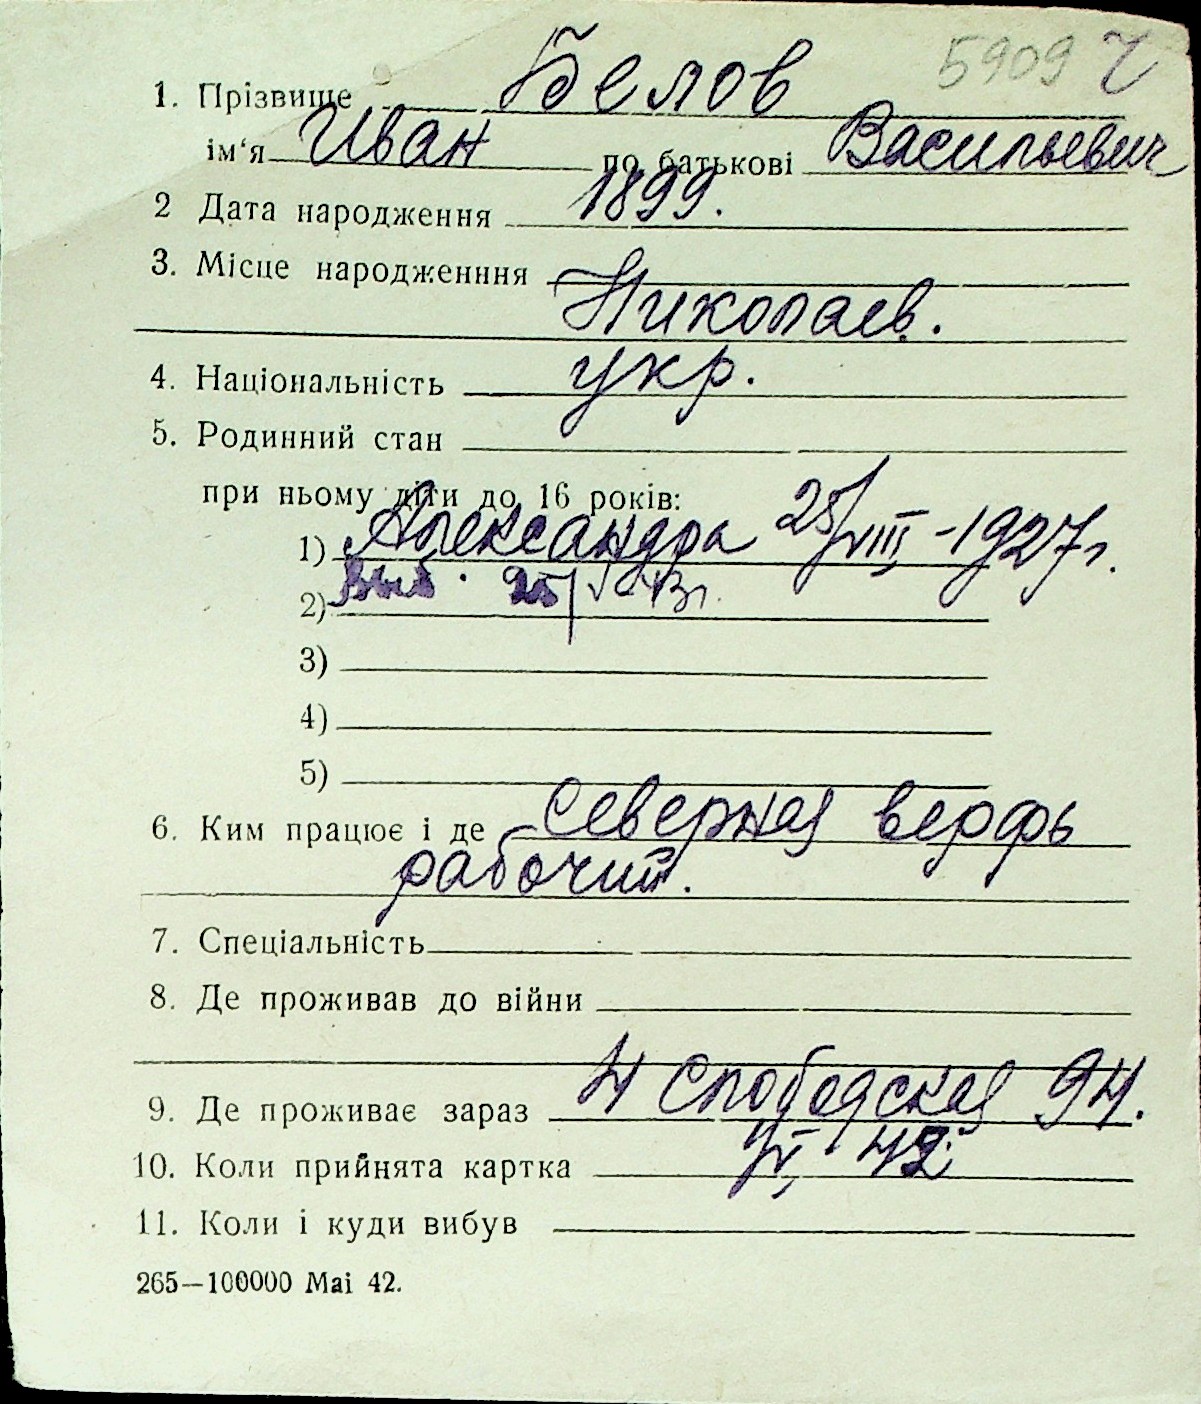 5909
1. Прізвище Белов
ім'я Иван по батькові Васильевич
2 Дата народження 1899.
3. Місце народженння
Николаев.
4. Національність укр.
5. Родинний стан
при ньому діти до 16 років:
1) Александра 25/VIII-1927г.
2) выб. 25/ 43г.
3)
4)
5)
6. Ким працює і де Северная верфь
рабочий.
7. Спеціальність
8. Де проживав до війни
9. Де проживає зараз 4 Слободская 94.
10. Коли прийнята картка 42
11. Коли і куди вибув
265—100000 Маі 42.